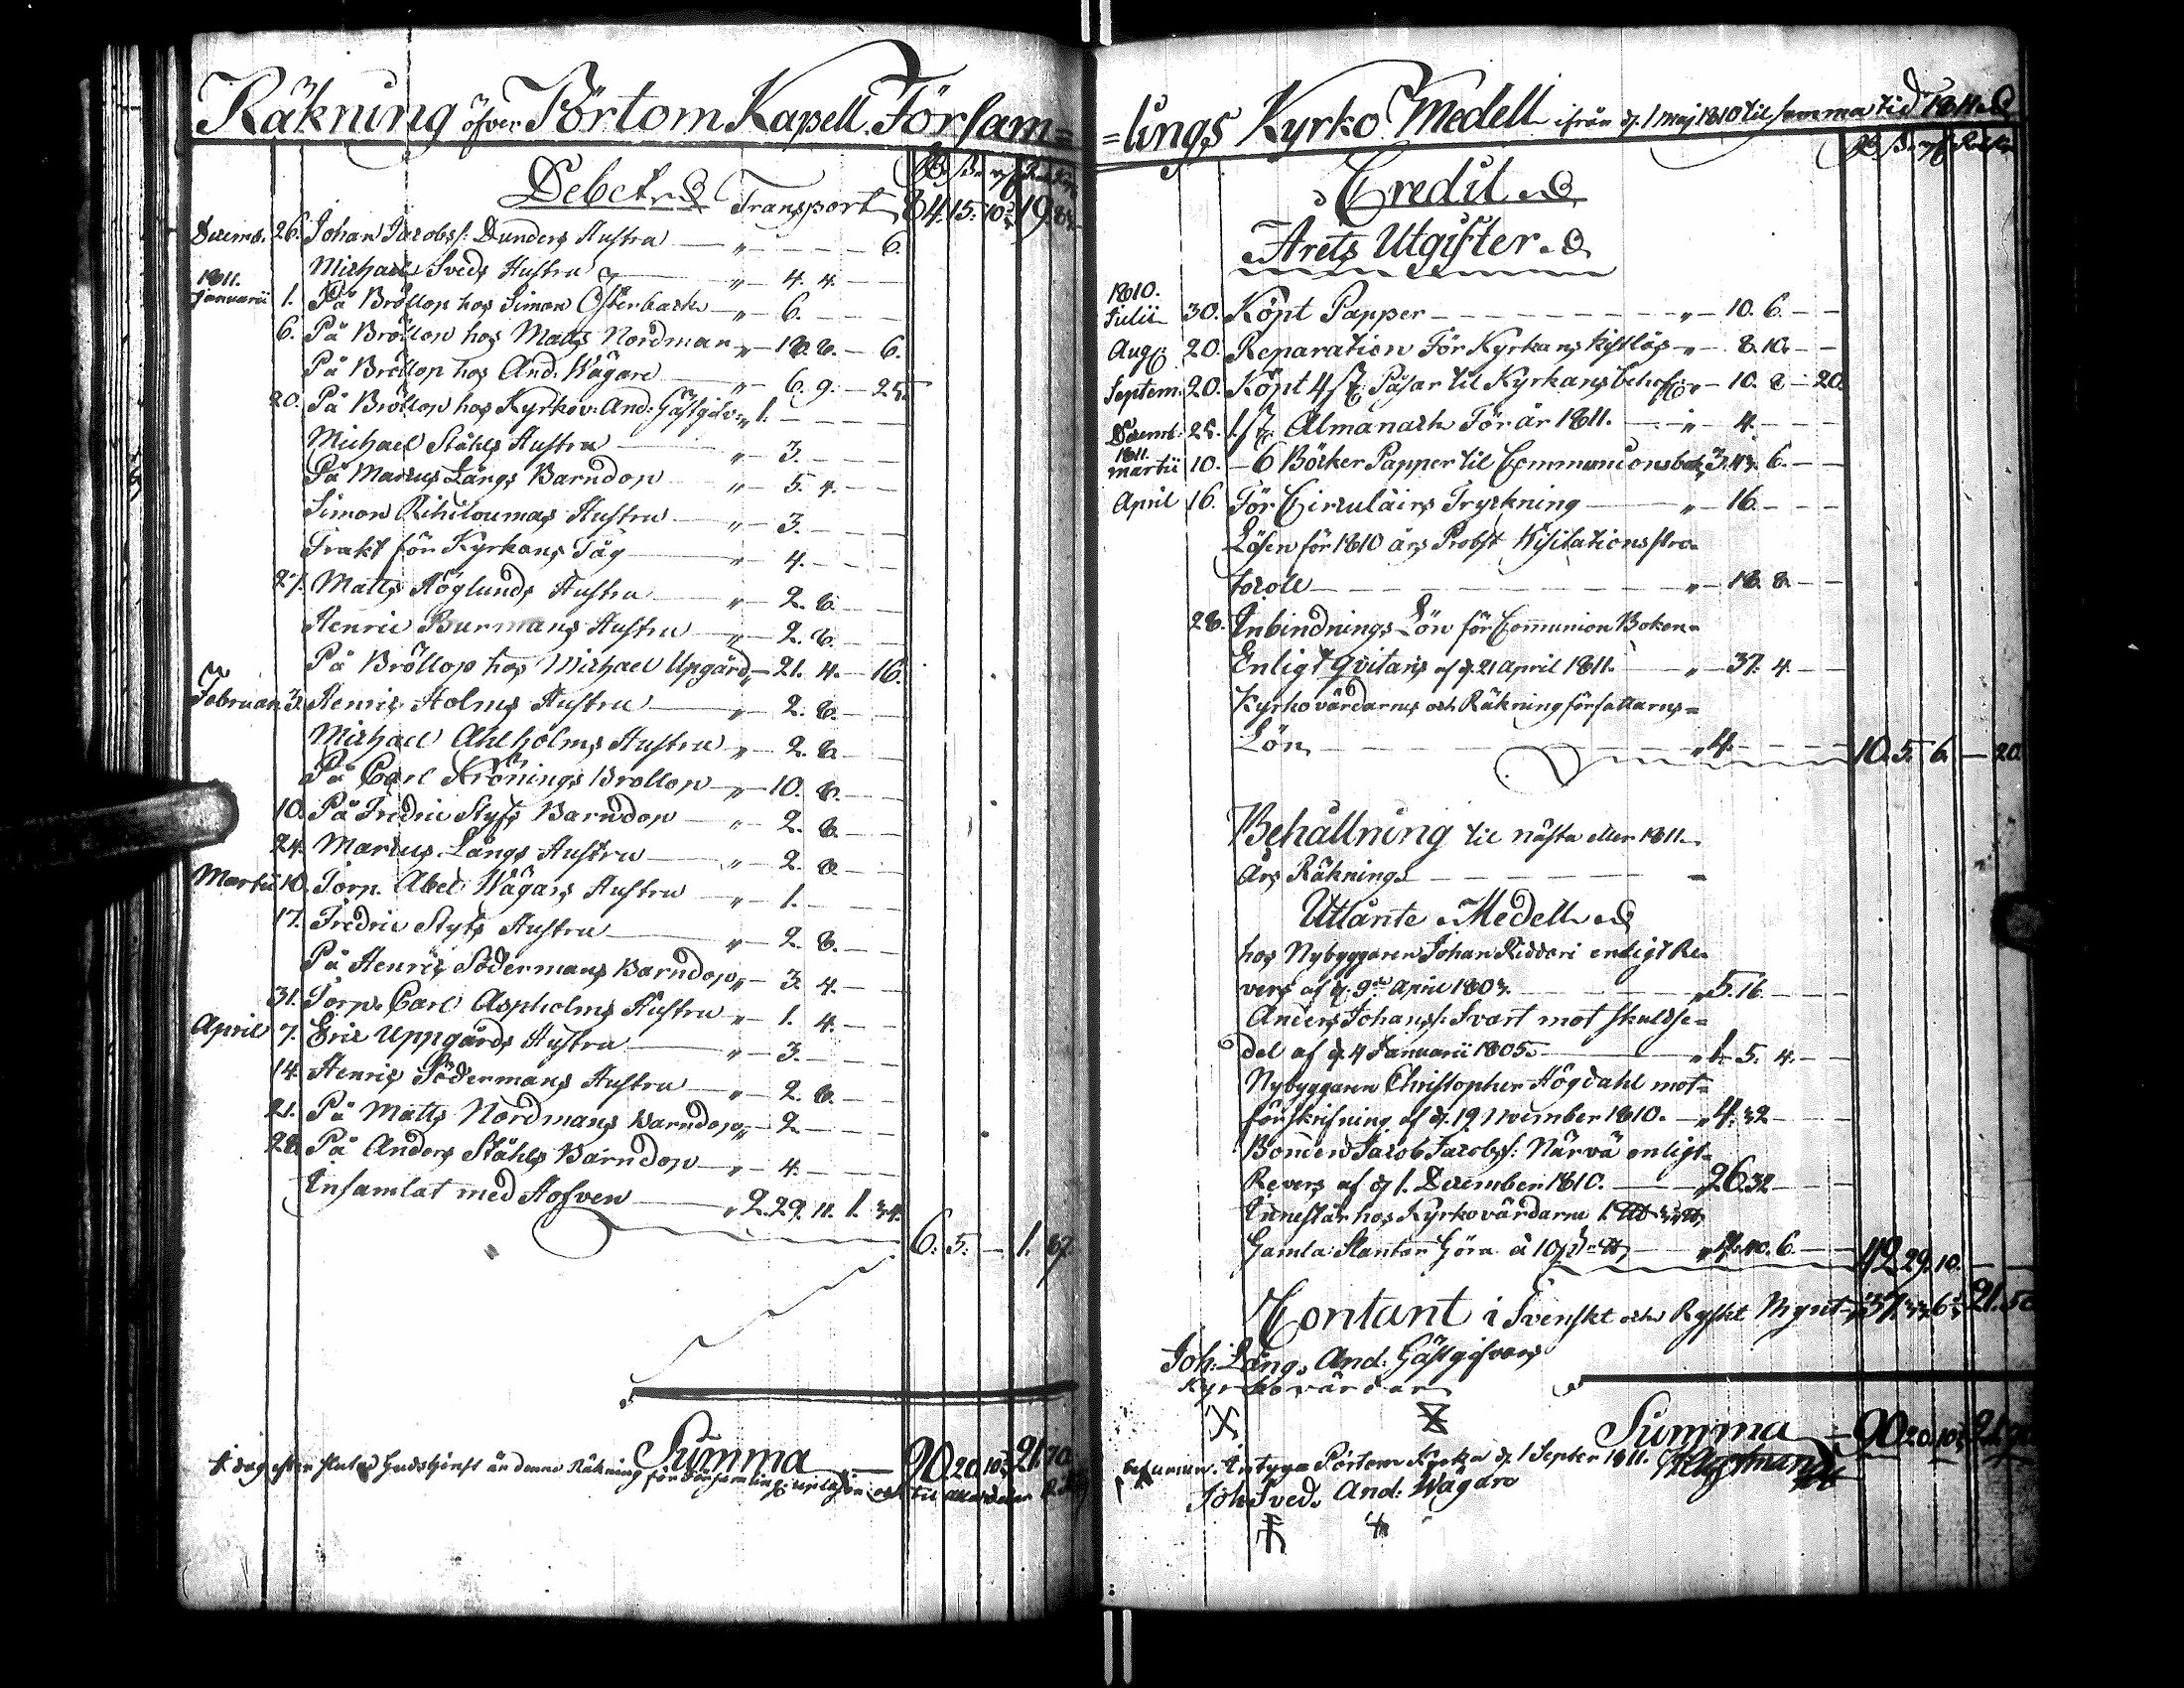 Räkning öfver Pörtom Kapell Försam=
Debet Transport 84. 15. 10 19. 83.
Decemb. 26. Johan Jacobss: Dunders Hustru " 6.
Michael Sveds Hustru " 4. 4.
1811.
Januarii 1. På Bröllop hos Simon Österback " 6.
6. På Bröllop hos Matts Nordman " 18. 8. 6.
På Bröllop hos And. Wägare " 6. 9. 25.
20. På Bröllop hos Kyrkov. And: Gästgifv: " 1.
Michael Ståhls Hustru " 3.
På Marcus Långs Barndop " 5. 4.
Simon Rihiloumas Hustru " 3.
Frakt för Kyrkans Tåg " 4.
27. Matts Höglunds Hustru " 2. 8.
Henric Burmans Hustru " 2. 8.
På Bröllop hos Michael Upgård " 21. 4. 16.
Februari 3. Henric Holms Hustru " 2. 8.
Michael Ahlholms Hustru " 2. 8.
På Carl Kronings Bröllop " 10. 8.
10. På Fredric Styfs Barndop " 2. 8.
24. Marcus Långs Hustru " 2. 8.
Martii 10. Torp. Abel Wägars Hustru " 1.
17. Fredric Styfs Hustru " 2. 8.
På Henric Södermans Barndop " 3. 4.
31. Torp. Carl Aspholms Hustru " 1. 4.
April 7. Eric Uppgårds Hustru " 3.
14. Henric Södermans Hustru " 2. 8.
21. På Matts Nordmans Barndop " 2.
28. På Anders Ståhls Barndop " 4.
Insamlat med Hofven " 2. 29. 11. 1. 34.
6. 5. 1. 87.
Summa 90. 20. 10 21. 70
I dag efter slutad Gudstjenst är denna Räkning för Församling: upläsen och til alla delar
=lings Kyrko Medell ifrån d. 1 Maj 1810 til samma tid 1811.
Credit
Årets Utgifter
1810.
Julii 30. Köpt Papper " 10. 6.
Aug: 20. Reparation För Kyrkans Kistlås " 8. 10.
Septem: 20. Köpt 4 st: Påsar til Kyrkans behof " 10. 8. 20.
Decemb: 25. 1 st: Almanach För år 1811. " 4.
1811.
Martii 10. 6 Böcker Papper til Communionsbok 3. 43. 6.
April 16. För Circulairs Tryckning " 16.
Lösen för 1810 års Probst Visitations Pro=
tocoll " 18. 8.
28. Inbindnings Lön för Communion Boken=
Enligt qvitans af d. 21 April 1811. " 37. 4.
Kyrkovärdarnes och Räkningförfattarns=
Lön " 4. 10. 5. 6. 20.
Behållning til nästa eller 1811
års Räkning
Utlånte Medell
hos Nybyggaren Johan Riddari enligt Re=
vers af d. 9de April 1803. " 5. 16.
Anders Johanss: Svart mot skuldse=
del af d. 4 Januarii 1805. " 1. 5. 4.
Nybyggaren Christopher Högdahl mot=
förskrifning af d. 19 November 1810. " 4. 32
Bonden Jacob Jacobss: Närvä enligt=
Revers af d. 1. December 1810. " 26. 32
Innestår hos Kyrkovärdarne
Gamla Slantar Göra à 10 " 4. 40. 6. 42. 29. 10.
Contant i Svenskt och Ryskt Mynt 37. 33. 6 21. 50
Joh: Lång, And: Gästgifvars
Kyrkovärdar
Summa 90. 20. 10 21. 70
Intyga Pörtom Kyrka d. 1 Septer 1811.
Joh Sved. And: Wägare